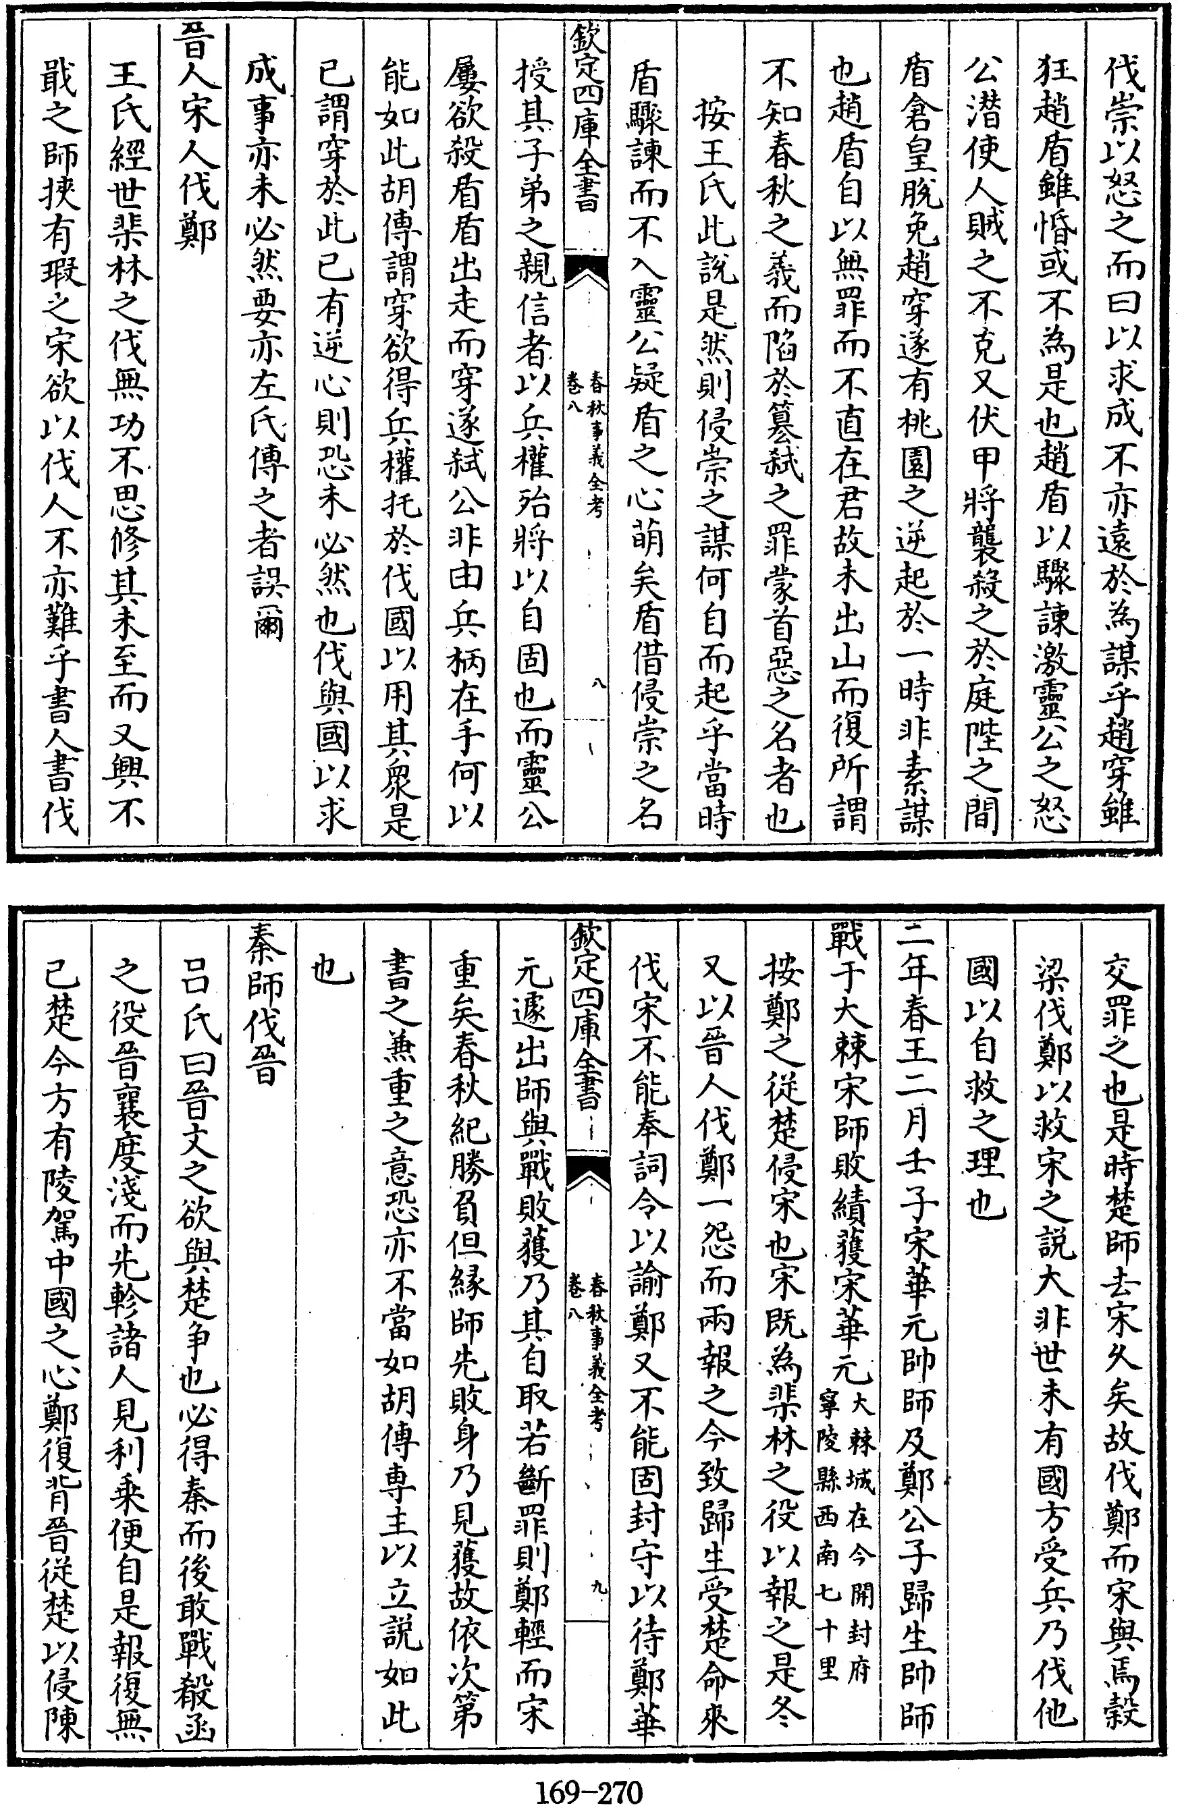 伐崇以怒之而曰以求成不亦遠於為謀乎趙穿雖
狂趙盾雖惛或不為是也趙盾以驟諫激靈公之怒
公潛使人賊之不克又伏甲將襲殺之於庭陛之間
盾倉皇脫免趙穿遂有桃園之逆起於一時非素謀
也趙盾自以無罪而不直在君故未出山而復所謂
不知春秋之義而陷於簒弑之罪蒙首惡之名者也
按王氏此說是然則侵崇之謀何自而起乎當時
盾驟諫而不入靈公疑盾之心萌矣盾借侵崇之名
欽定四庫全書
春秋事義全考
卷八
八
授其子弟之親信者以兵權殆將以自固也而靈公
屢欲殺盾盾出走而穿遂弑公非由兵柄在手何以
能如此胡傳謂穿欲得兵權托於伐國以用其衆是
已謂穿於此已有逆心則恐未必然也伐與國以求
成事亦未必然要亦左氏傳之者誤爾
晉人宋人伐鄭
王氏經世棐林之伐無功不思修其未至而又興不
戢之師挾有瑕之宋欲以伐人不亦難乎書人書伐
交罪之也是時楚師去宋久矣故伐鄭而宋與焉穀
梁伐鄭以救宋之説大非世未有國方受兵乃伐他
國以自救之理也
二年春王二月壬子宋華元帥師及鄭公子歸生帥師
戰于大棘宋師敗績獲宋華元大棘城在今開封府
寧陵縣西南七十里
按鄭之從楚侵宋也宋既為棐林之役以報之是冬
又以晉人伐鄭一怨而兩報之今致歸生受楚命來
伐宋不能奉詞令以諭鄭又不能固封守以待鄭華
欽定四庫全書
春秋事義全考
卷八
九
元遽出師與戰敗獲乃其自取若斷罪則鄭輕而宋
重矣春秋紀勝負但緣師先敗身乃見獲故依次第
書之兼重之意恐亦不當如胡傳専主以立説如此
也
秦師伐晉
呂氏曰晉文之欲與楚爭也必得秦而後敢戰殽函
之役晉襄度淺而先軫諸人見利乗便自是報復無
已楚今方有陵駕中國之心鄭復背晉從楚以侵陳
169-270